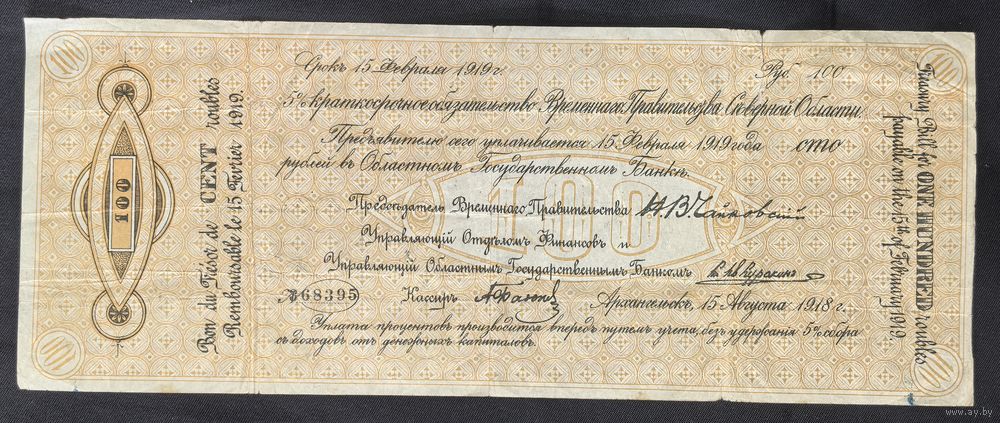 100
100
Срокъ 15 Февраля 1919 г.
Руб. 100
5% краткосрочное обязательство Временнаго Правительства Сѣверной Области.
Предъявителю сего уплачивается 15 Февраля 1919 года сто
рублей въ Областномъ Государственномъ Банкѣ.
100
Предсѣдатель Временнаго Правительства Н.В.Чайковскій
Управляющій Отдѣломъ Финансовъ и
Управляющій Областнымъ Государственнымъ Банкомъ
№ 68395 Кассиръ
Архангельскъ, 15 Августа 1918 г.
Уплата процентовъ производится впередъ путемъ учета, безъ удержанія 5% сбора
съ доходовъ отъ денежныхъ капиталовъ.
100
100
100
Bon du Trésor de CENT roubles
Remboursable le 15 Fevrier 1919.
Treasury Bill for ONE HUNDRED roubles
payable on the 15th of February 1919.
www.ay.by